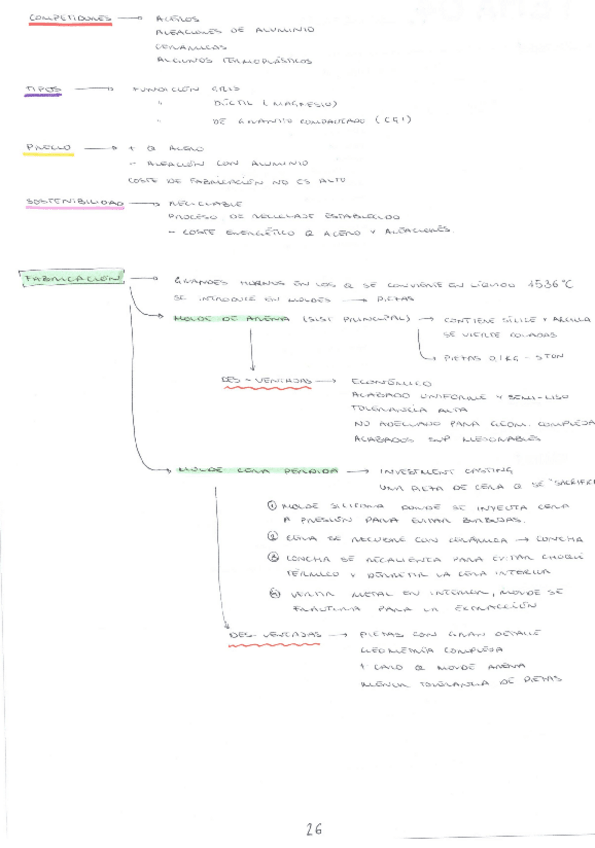 COMPETIDORES → ACEROS
ALEACIONES DE ALUMINIO
CERÁMICAS
ALGUNOS TERMOPLÁSTICOS
TIPOS → FUNDICIÓN GRIS
" DÚCTIL (MAGNESIO)
" DE GRAFITO COMPACTADO (CGI)
PRECIO → ↑ Q ACERO
- ALEACIÓN CON ALUMINIO
COSTE DE FABRICACIÓN NO ES ALTO
SOSTENIBILIDAD → RECICLABLE
PROCESO DE RECICLAJE ESTABLECIDO
- COSTE ENERGÉTICO Q ACERO Y ALEACIONES.
FABRICACIÓN → GRANDES HORNOS EN LOS Q SE CONVIERTE EN LÍQUIDO 1536°C
SE INTRODUCE EN MOLDES → PIEZAS
MOLDE DE ARENA (SIST PRINCIPAL) → CONTIENE SÍLICE Y ARCILLA
SE VIERTE COLADAS
→ PIEZAS 0,1KG - 5TON
DES-VENTAJAS → ECONÓMICO
ACABADO UNIFORME Y SEMI-LISO
TOLERANCIA ALTA
NO ADECUADO PARA GEOM. COMPLEJA
ACABADOS SUP MEJORABLES
MOLDE CERA PERDIDA → INVESTMENT CASTING
UNA PIEZA DE CERA Q SE "SACRIFI
① MOLDE SILICONA DONDE SE INYECTA CERA
A PRESIÓN PARA EVITAR BURBUJAS.
② CERA SE RECUBRE CON CERÁMICA → CONCHA
③ CONCHA SE RECALIENTA PARA EVITAR CHOQUE
TÉRMICO Y DERRETIR LA CERA INTERIOR
④ VERTIR METAL EN INTERIOR, MOLDE SE
FRACTURA PARA LA EXTRACCIÓN
DES-VENTAJAS → PIEZAS CON GRAN DETALLE
GEOMETRÍA COMPLEJA
↑ CARO Q MOLDE ARENA
MENOR TOLERANCIA DE PIEZAS
26